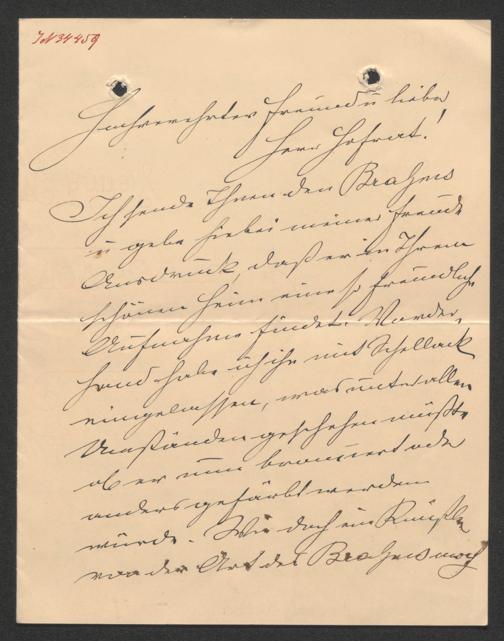 JN 34459
Hochverehrter Freund u lieber
Herr Hofrat!
Ich sende Ihnen den Brahms
u gebe hiebei meiner Freude
Ausdruck, daß er in Ihrem
schönen Heim eine so freundliche
Aufnahme findet. Vorder-
hand habe ich ihn mit Schellack
eingelassen, was unter allen
Umständen geschehen müßte
ob er nun bronciert oder
anders gefärbt werden
würde. Wie doch ein Künstler
von der Art des Brahms noch